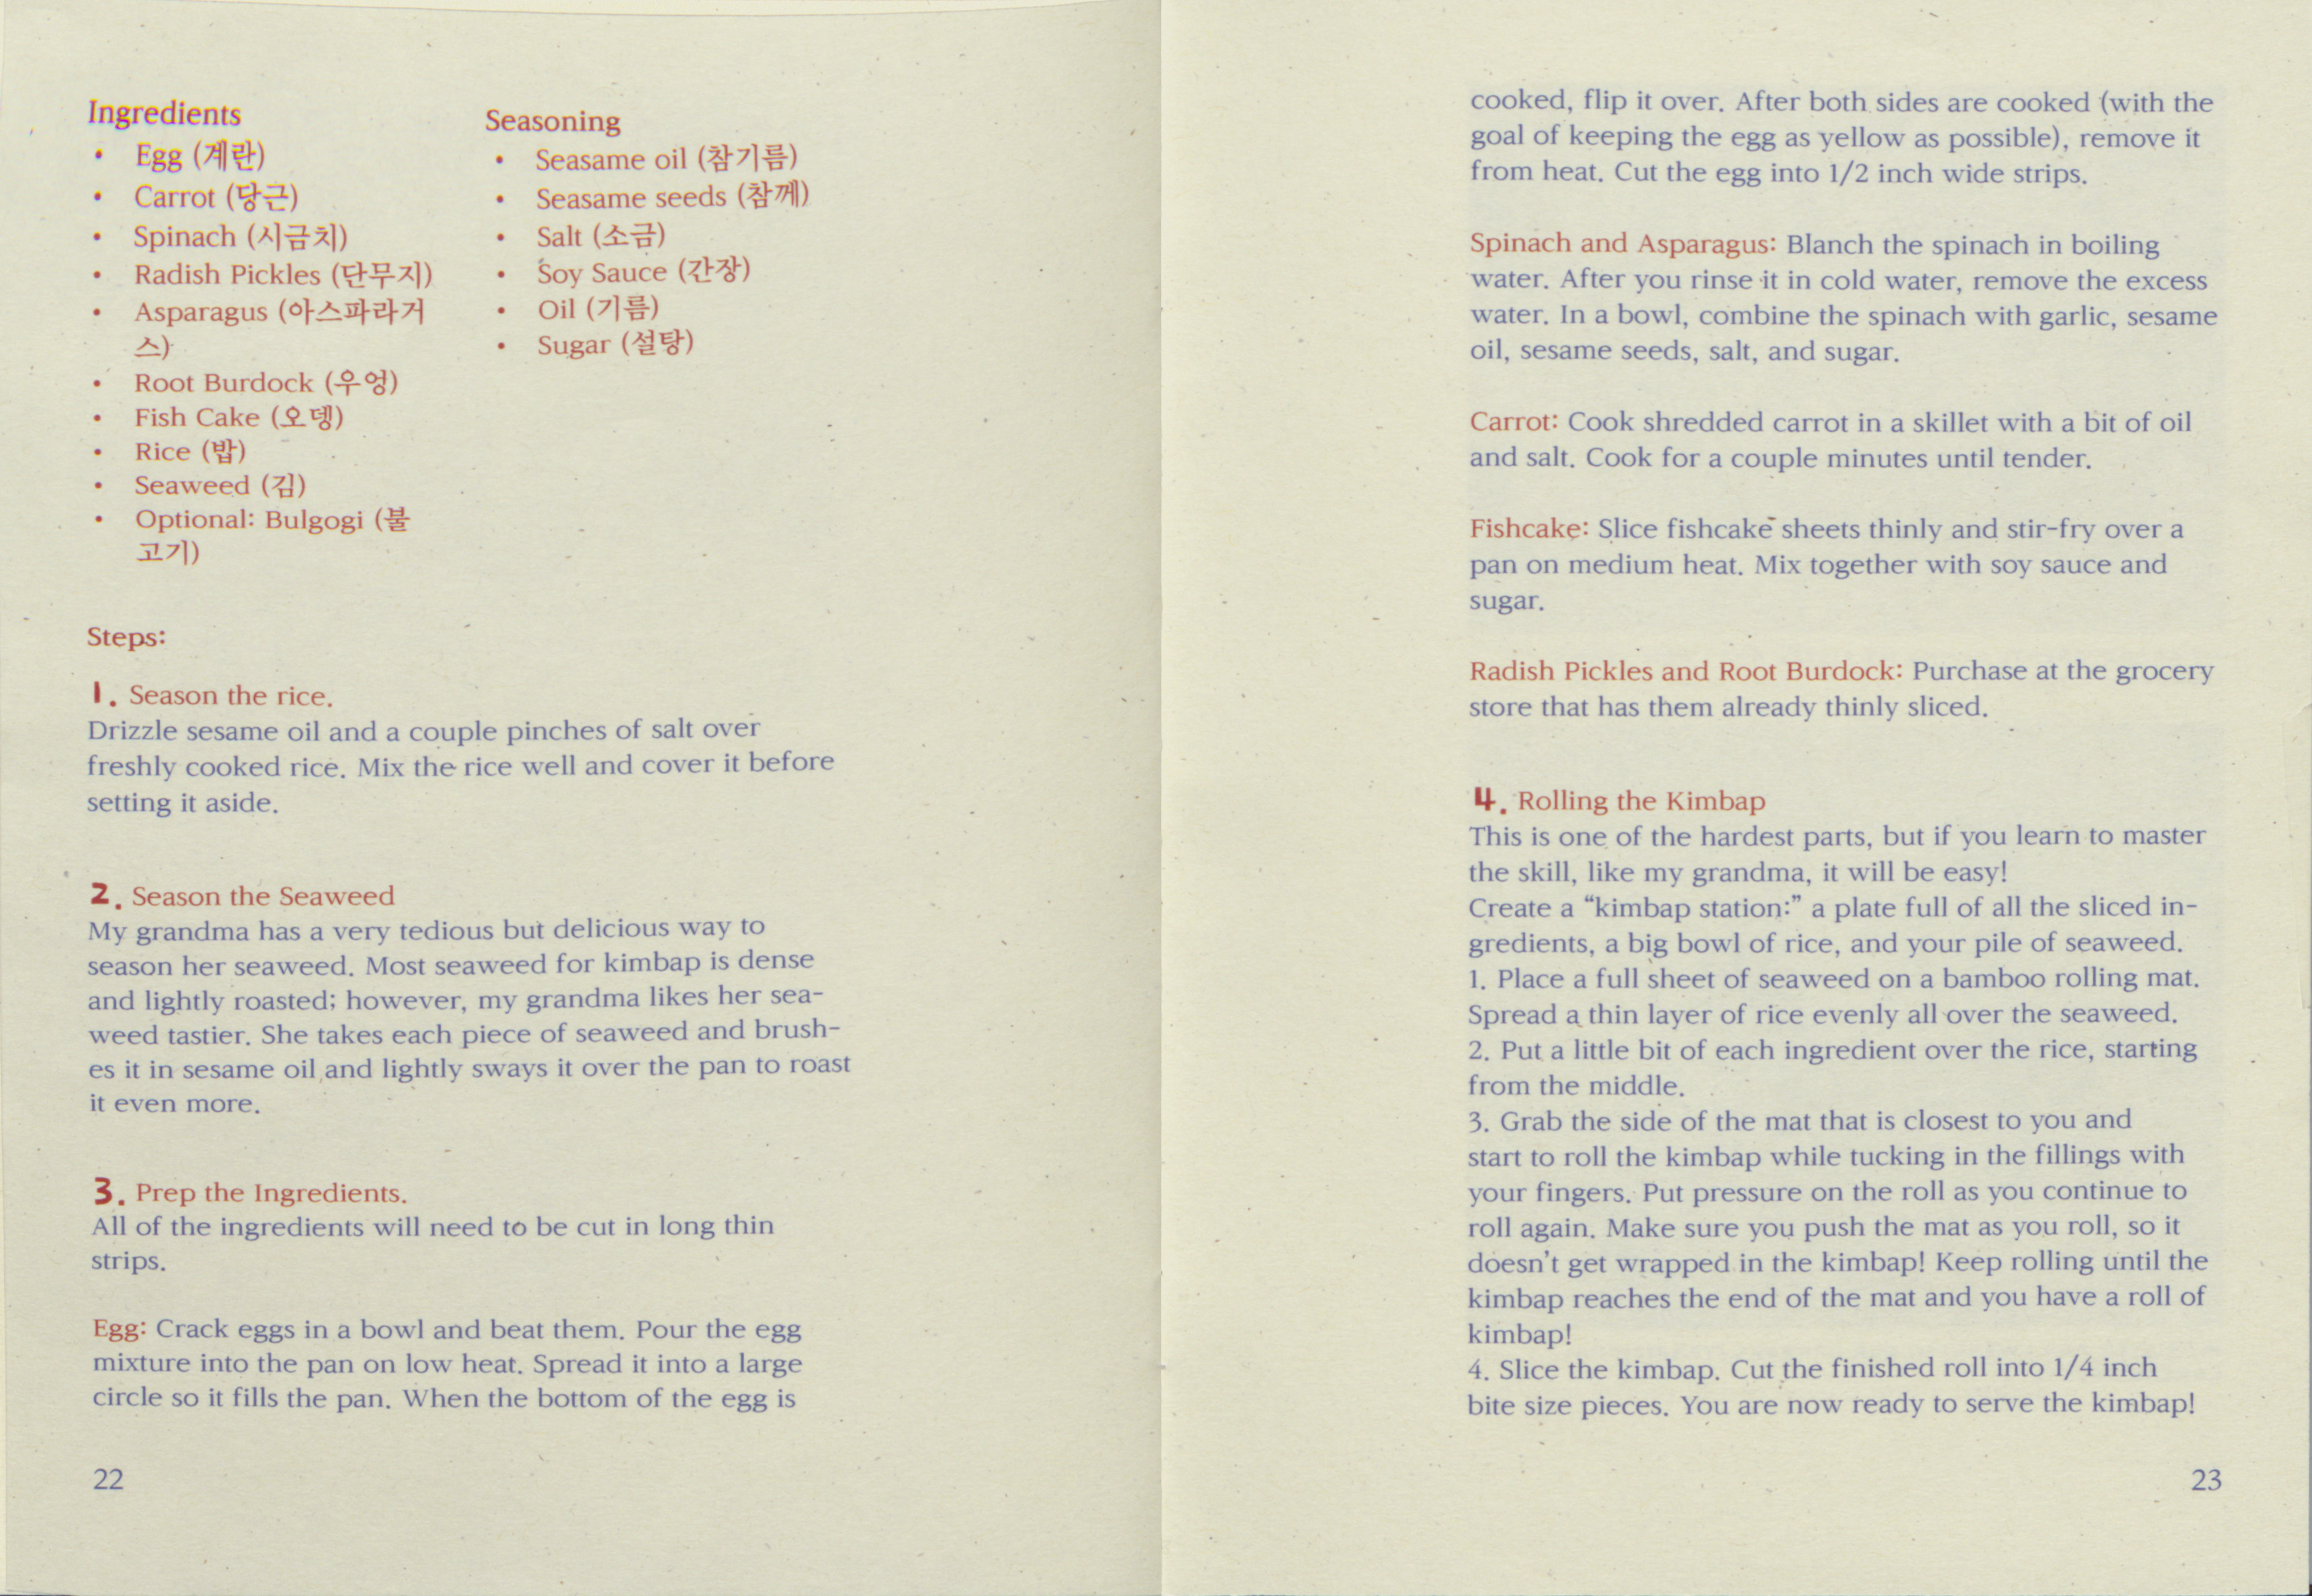 Ingredients
• Egg (계란)
• Carrot (당근)
• Spinach (시금치)
• Radish Pickles (단무지)
• Asparagus (아스파라거
스)
• Root Burdock (우엉)
• Fish Cake (오뎅)
• Rice (밥)
• Seaweed (김)
• Optional: Bulgogi (불
고기)
Seasoning
• Seasame oil (참기름)
• Seasame seeds (참께)
• Salt (소금)
• Soy Sauce (간장)
• Oil (기름)
• Sugar (설탕)
Steps:
1. Season the rice.
Drizzle sesame oil and a couple pinches of salt over
freshly cooked rice. Mix the rice well and cover it before
setting it aside.
2. Season the Seaweed
My grandma has a very tedious but delicious way to
season her seaweed. Most seaweed for kimbap is dense
and lightly roasted; however, my grandma likes her sea-
weed tastier. She takes each piece of seaweed and brush-
es it in sesame oil and lightly sways it over the pan to roast
it even more.
3. Prep the Ingredients.
All of the ingredients will need to be cut in long thin
strips.
Egg: Crack eggs in a bowl and beat them. Pour the egg
mixture into the pan on low heat. Spread it into a large
circle so it fills the pan. When the bottom of the egg is
22
cooked, flip it over. After both sides are cooked (with the
goal of keeping the egg as yellow as possible), remove it
from heat. Cut the egg into 1/2 inch wide strips.
Spinach and Asparagus: Blanch the spinach in boiling
water. After you rinse it in cold water, remove the excess
water. In a bowl, combine the spinach with garlic, sesame
oil, sesame seeds, salt, and sugar.
Carrot: Cook shredded carrot in a skillet with a bit of oil
and salt. Cook for a couple minutes until tender.
Fishcake: Slice fishcake sheets thinly and stir-fry over a
pan on medium heat. Mix together with soy sauce and
sugar.
Radish Pickles and Root Burdock: Purchase at the grocery
store that has them already thinly sliced.
4. Rolling the Kimbap
This is one of the hardest parts, but if you learn to master
the skill, like my grandma, it will be easy!
Create a “kimbap station:” a plate full of all the sliced in-
gredients, a big bowl of rice, and your pile of seaweed.
1. Place a full sheet of seaweed on a bamboo rolling mat.
Spread a thin layer of rice evenly all over the seaweed.
2. Put a little bit of each ingredient over the rice, starting
from the middle.
3. Grab the side of the mat that is closest to you and
start to roll the kimbap while tucking in the fillings with
your fingers. Put pressure on the roll as you continue to
roll again. Make sure you push the mat as you roll, so it
doesn’t get wrapped in the kimbap! Keep rolling until the
kimbap reaches the end of the mat and you have a roll of
kimbap!
4. Slice the kimbap. Cut the finished roll into 1/4 inch
bite size pieces. You are now ready to serve the kimbap!
23